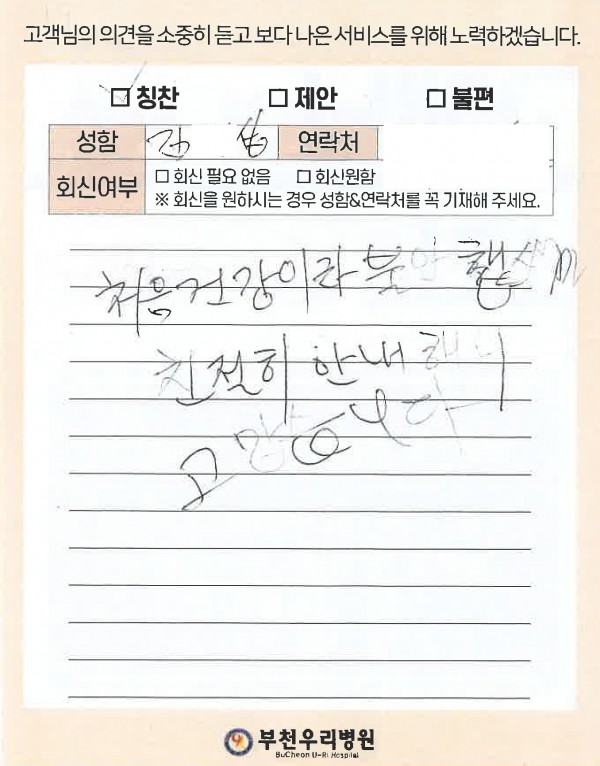 고객님의 의견을 소중히 듣고 보다 나은 서비스를 위해 노력하겠습니다.
□ 칭찬 □ 제안 □ 불편
성함 연락처
회신여부 □ 회신 필요 없음 □ 회신원함
※ 회신을 원하시는 경우 성함&연락처를 꼭 기재해 주세요.
처음 건강이라 불안 했
친절히 안내 해
고맙습니다
부천우리병원
BuCheon U-Ri Hospital